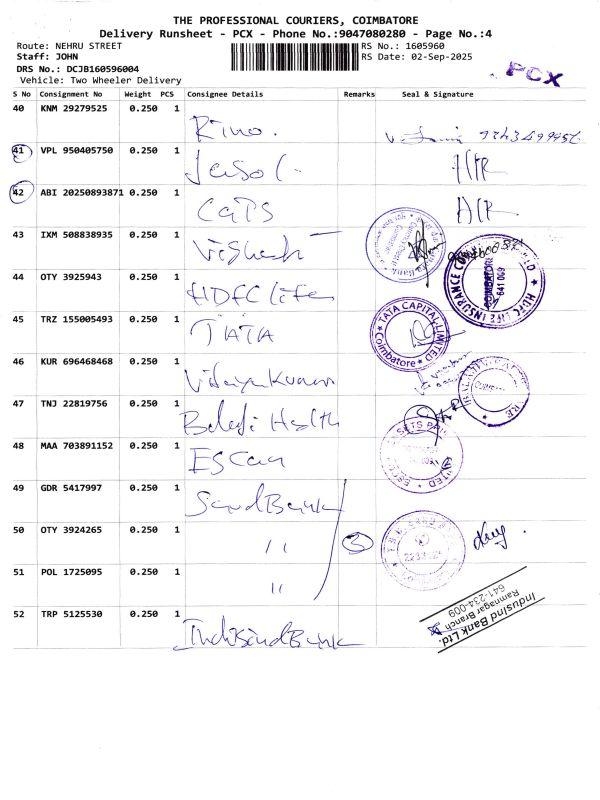 THE PROFESSIONAL COURIERS, COIMBATORE
Delivery Runsheet - PCX - Phone No.:9047080280 - Page No.:4
Route: NEHRU STREET
RS No.: 1605960
Staff: JOHN
RS Date: 02-Sep-2025
DRS No.: DCJB160596004
Vehicle: Two Wheeler Delivery
PCX
S No Consignment No Weight PCS Consignee Details Remarks Seal & Signature
40 KNM 29279525 0.250 1 Rino.
41 VPL 950405750 0.250 1
42 ABI 20250893871 0.250 1
43 IXM 508838935 0.250 1
44 OTY 3925943 0.250 1 HDFC life
HDFC LIFE INSURANCE
COIMBATORE
641 009
45 TRZ 155005493 0.250 1 TATA
TATA CAPITAL LIMITED
Coimbatore
46 KUR 696468468 0.250 1
47 TNJ 22819756 0.250 1 Health
48 MAA 703891152 0.250 1
49 GDR 5417997 0.250 1
50 OTY 3924265 0.250 1 " 3
51 POL 1725095 0.250 1 "
52 TRP 5125530 0.250 1
IndusInd Bank Ltd.
Ramnagar Branch
641-234-009